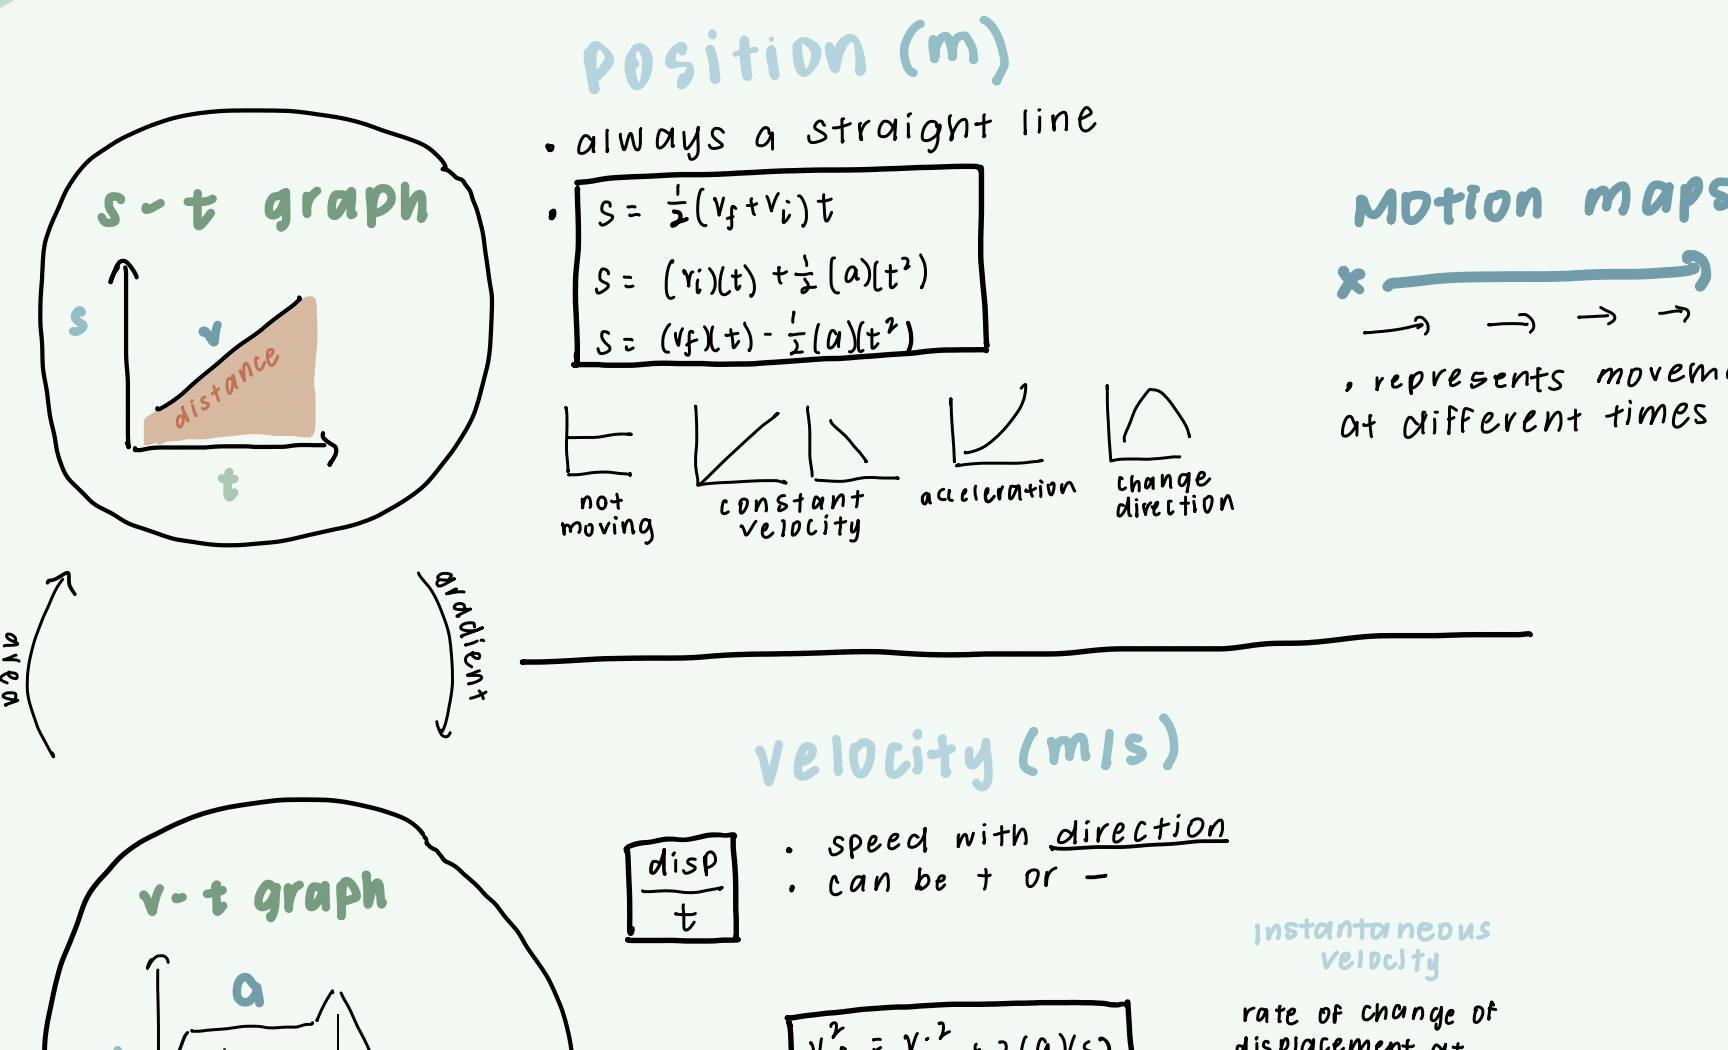 position (m)
• always a straight line
s-t graph
s
v
distance
t
• s = ½(vf + vi)t
s = (vi)(t) + ½(a)(t²)
s = (vf)(t) - ½(a)(t²)
not
moving
constant
velocity
acceleration
change
direction
Motion maps
x
• represents movem
at different times
area
gradient
velocity (m/s)
disp
t
• speed with direction
• can be + or -
v-t graph
a
instantaneous
velocity
rate of change of
displacement at